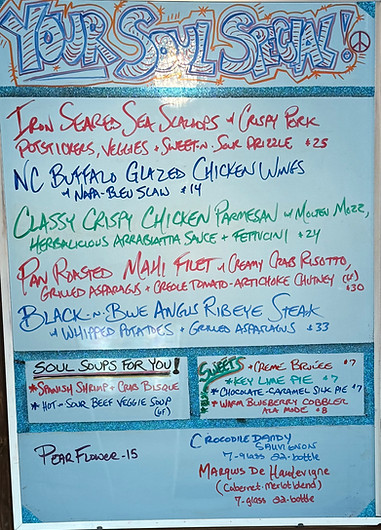 YOUR SOUL SPECIAL!
IRON SEARED SEA SCALLOPS w CRISPY PORK
POTSTICKERS, VEGGIES + SWEET-N-SOUR DRIZZLE $25
NC BUFFALO GLAZED CHICKEN WINGS
w NAPA-BLEU SLAW $14
CLASSY CRISPY CHICKEN PARMESAN w MOLTEN MOZZ,
HERBALICIOUS ARRABIATTA SAUCE + FETTUCINI $24
PAN ROASTED MAHI FILET w CREAMY CRAB RISOTTO,
GRILLED ASPARAGUS + CREOLE TOMATO-ARTICHOKE CHUTNEY (GF)
$30
BLACK-N-BLUE ANGUS RIBEYE STEAK
w WHIPPED POTATOES + GRILLED ASPARAGUS $33
SOUL SOUPS FOR YOU!
*SPANISH SHRIMP + CRAB BISQUE
*HOT-N-SOUR BEEF VEGGIE SOUP
(GF)
SWEETS
*CREME BRULEE $7
*KEY LIME PIE $7
*CHOCOLATE-CARAMEL SILK PIE $7
*WARM BLUEBERRY COBBLER
ALA MODE $8
PEAR FLOWER-15
CROCODILE DANDY
SAUVIGNON
7-glass 22-bottle
MARQUIS DE Hautevigne
(Cabernet-Merlot blend)
7-glass 22-bottle